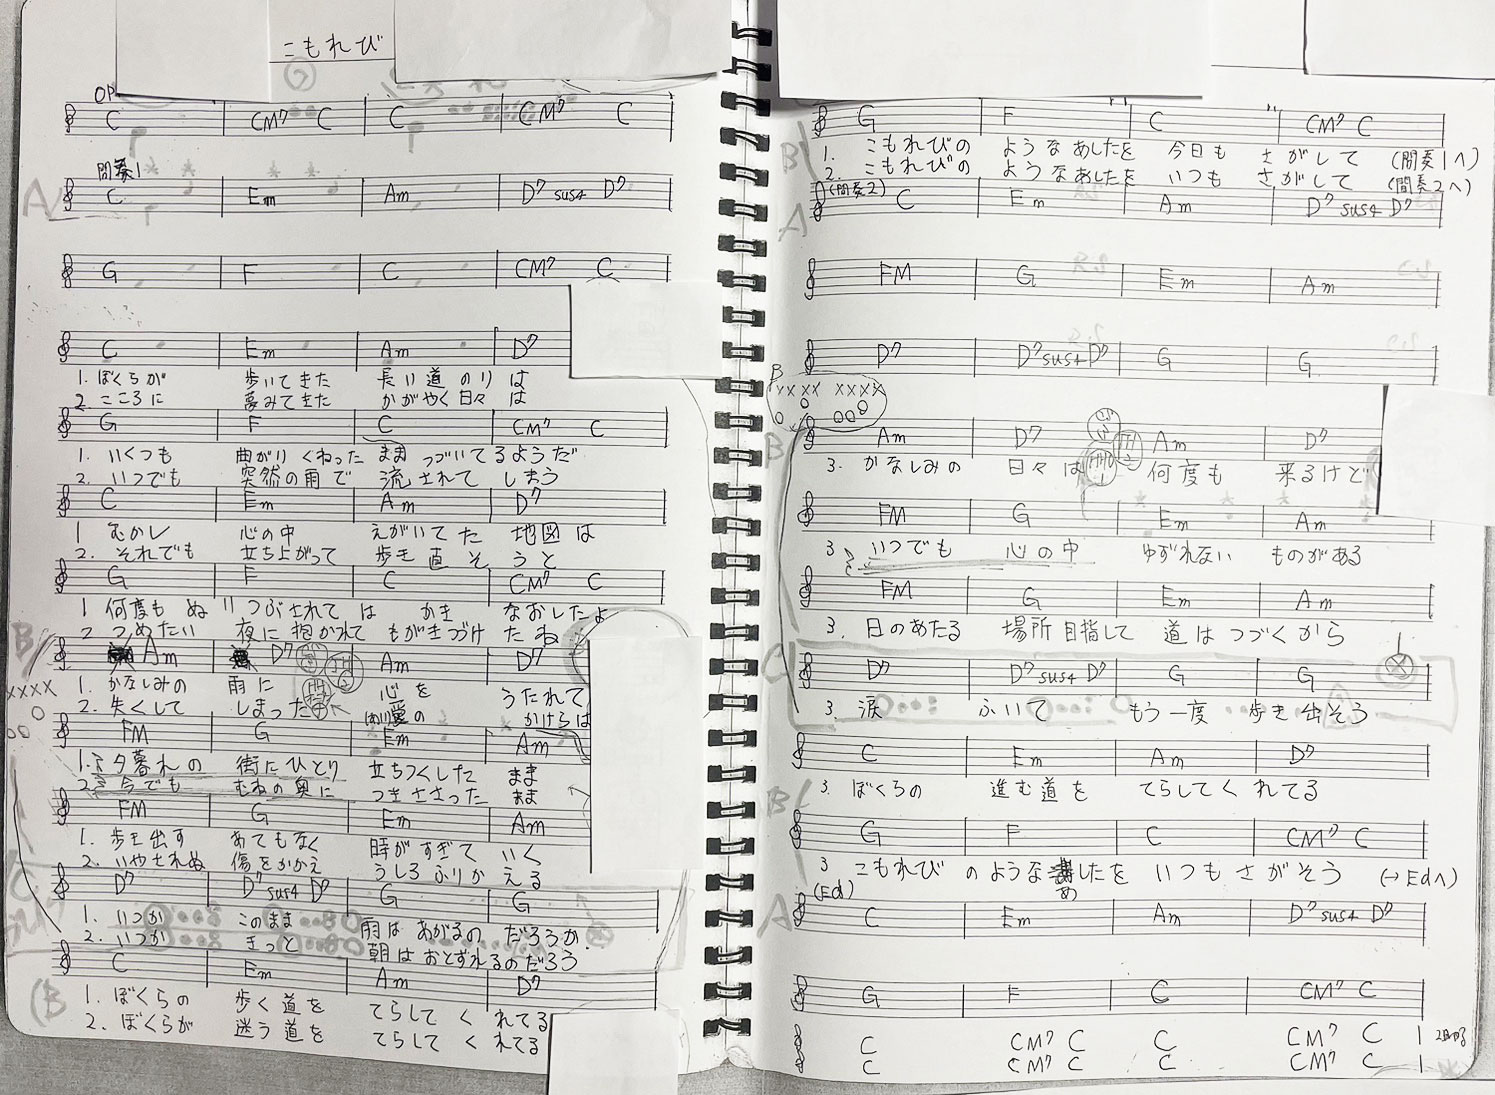 こもれび
OP
C CM7 C C CM7 C
間奏1
A C Em Am D7 sus4 D7
G F C CM7 C
C Em Am D7
1. ぼくらが 歩いてきた 長い道のりは
2. こころに 夢みてきた かがやく日々は
G F C CM7 C
1. いくつも 曲がりくねった まま つづいてるようだ
2. いつでも 突然の雨で 流されて しまう
C Em Am D7
1 むかし 心の中 えがいてた 地図は
2. それでも 立ち上がって 歩き直そうと
G F C CM7 C
1 何度も ぬりつぶされては かき なおしたよ
2 つめたい 夜に抱かれて もがきつづけ たね
B Am D7 Am D7
1. かなしみの 雨に 心を うたれて
2. 失くして しまった 愛の かけらは
xxxx
FM G Em Am
1. 夕暮れの 街にひとり 立ちつくした まま
2. 今でも むねの奥に つきささった まま
FM G Em Am
1. 歩き出す あてもなく 時がすぎて いく
2. いやされぬ 傷をかかえ うしろふりかえる
D7 D7 sus4 D7 G G
1. いつか このまま 雨は あがるの だろうか
2. いつか きっと 朝は おとずれるのだろう
C Em Am D7
B
1. ぼくらの 歩く道を てらして くれてる
2. ぼくらが 迷う道を てらして くれてる
G F C CM7 C
B
1. こもれびの ようなあしたを 今日も さがして (間奏1へ)
2. こもれびの ようなあしたを いつも さがして (間奏2へ)
(間奏2) C Em Am D7 sus4 D7
A
FM G Em Am
D7 D7 sus4 D7 G G
B
xxxx xxxx
Am D7 Am D7
B
3. かなしみの 日々は 何度も 来るけど
FM G Em Am
3 いつでも 心の中 ゆずれない ものがある
FM G Em Am
3. 日のあたる 場所目指して 道はつづくから
C D7 D7 sus4 D7 G G
3. 涙 ふいて もう一度 歩き出そう
C Em Am D7
3. ぼくらの 進む道を てらしてくれてる
B G F C CM7 C
3 こもれびのようなあしたを いつもさがそう (→Edへ)
(Ed)
A C Em Am D7 sus4 D7
G F C CM7 C
C CM7 C C CM7 C
C CM7 C C CM7 C